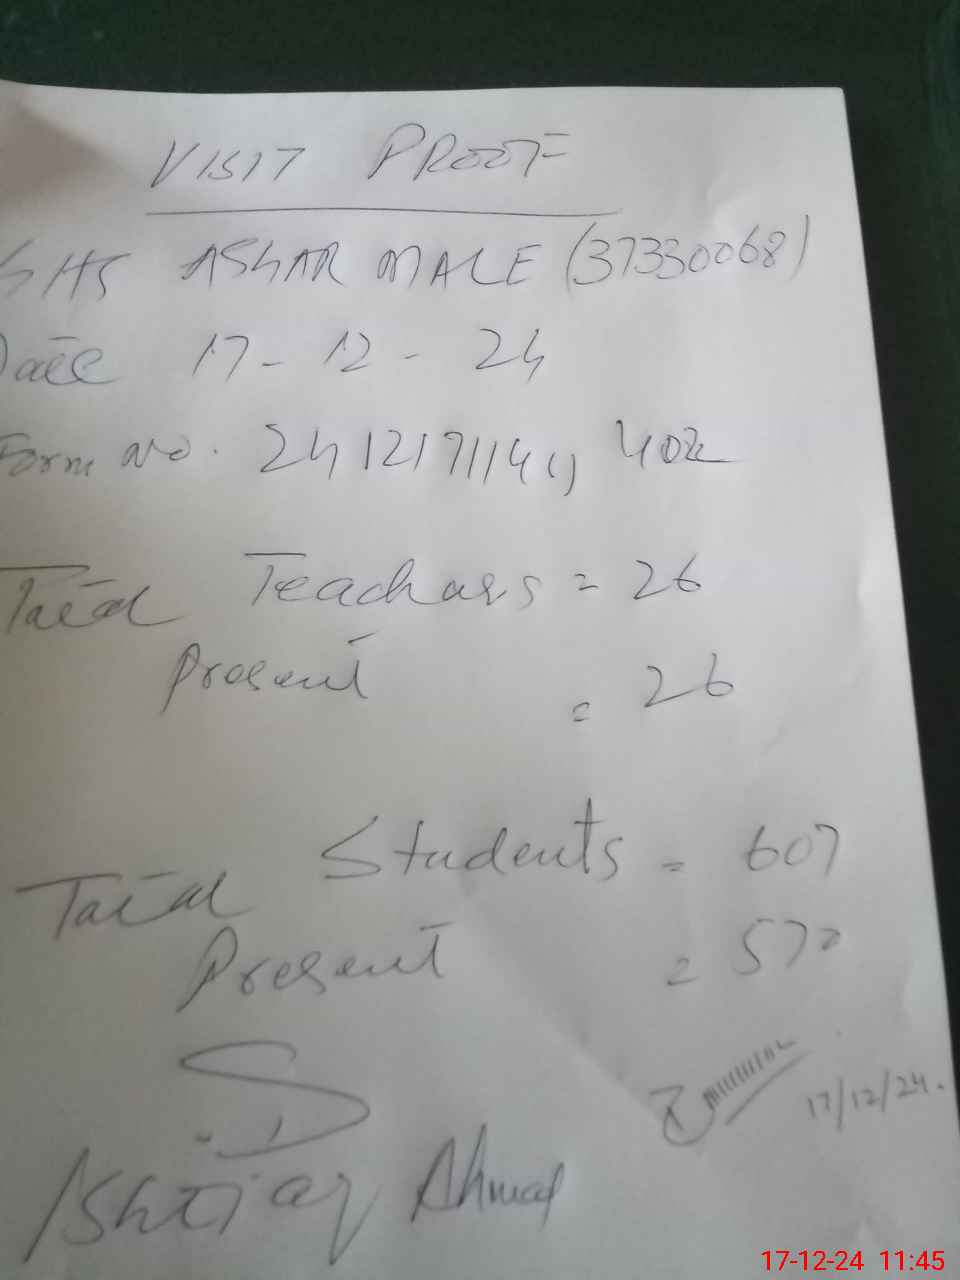 VISIT PROOF
GHS ASGHAR MALE (37330068)
Date 17-12-24
Form No. 2412171141, 402
Total Teachars = 26
Present = 26
Total Students = 607
Present = 570
17/12/24.
Ishtiaq Ahmad
17-12-24 11:45